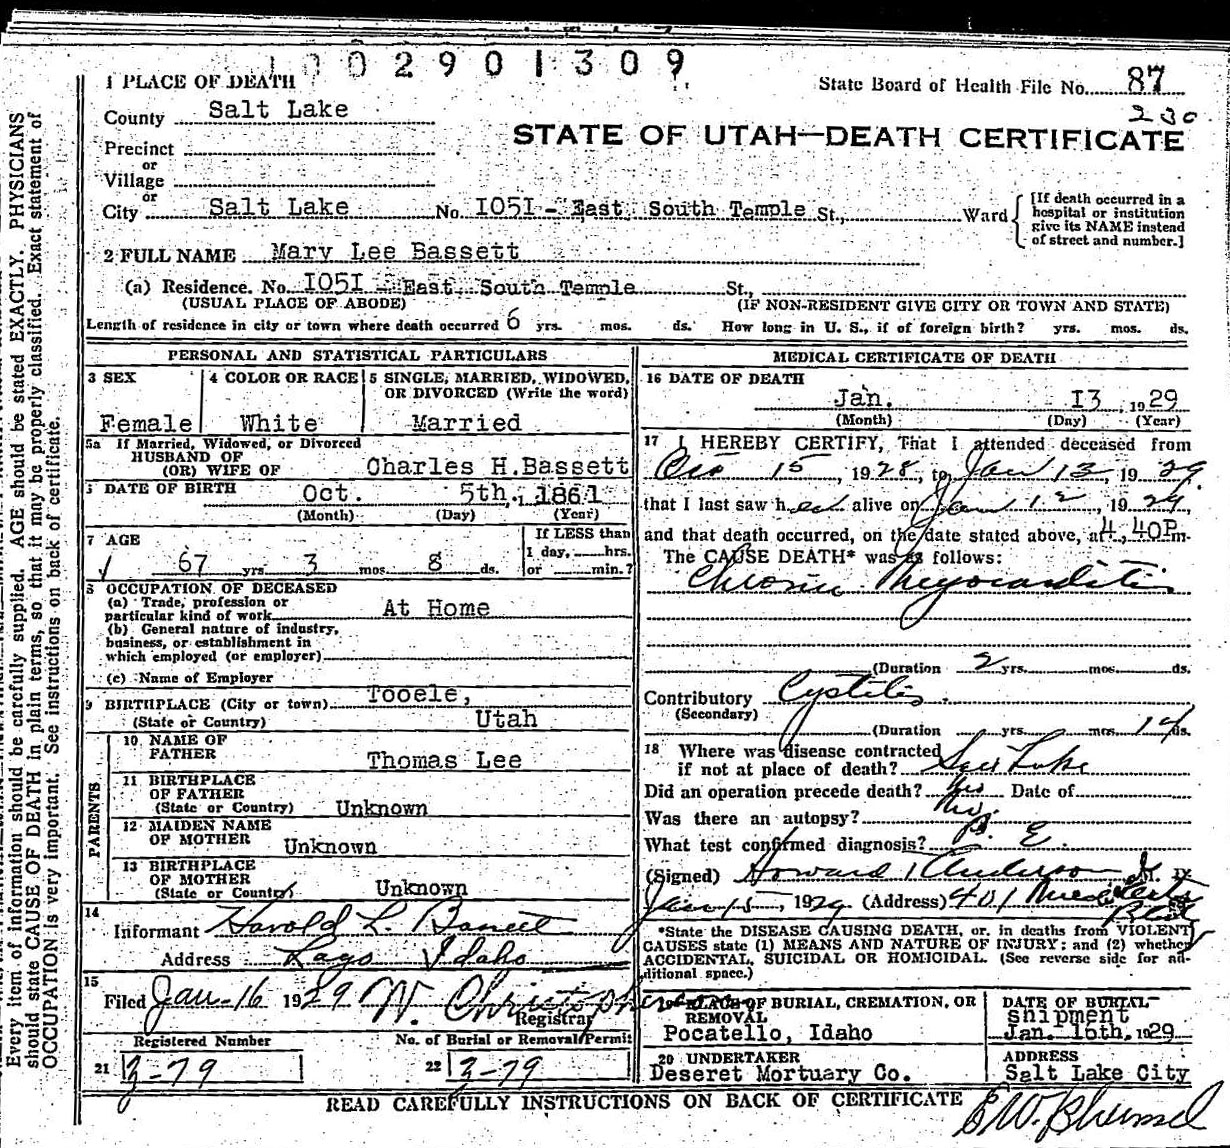 1 0 0 2 9 0 1 3 0 9
1 PLACE OF DEATH
State Board of Health File No. 87
230
County Salt Lake
STATE OF UTAH—DEATH CERTIFICATE
Precinct
or
Village
or
City Salt Lake No. 1051 - East South Temple St., Ward
[If death occurred in a
hospital or institution
give its NAME instead
of street and number.]
2 FULL NAME Mary Lee Bassett
(a) Residence. No. 1051 - East South Temple St.,
(USUAL PLACE OF ABODE) (IF NON-RESIDENT GIVE CITY OR TOWN AND STATE)
Length of residence in city or town where death occurred 6 yrs. mos. ds. How long in U. S., if of foreign birth? yrs. mos. ds.
PERSONAL AND STATISTICAL PARTICULARS
3 SEX
Female
4 COLOR OR RACE
White
5 SINGLE, MARRIED, WIDOWED,
OR DIVORCED (Write the word)
Married
5a If Married, Widowed, or Divorced
HUSBAND OF
(OR) WIFE OF Charles H.Bassett
DATE OF BIRTH Oct. 5th, 1861
(Month) (Day) (Year)
7 AGE
67 yrs. 3 mos. 8 ds.
If LESS than
1 day, hrs.
or min.?
8 OCCUPATION OF DECEASED
(a) Trade, profession or
particular kind of work At Home
(b) General nature of industry,
business, or establishment in
which employed (or employer)
(c) Name of Employer
9 BIRTHPLACE (City or town) Tooele,
(State or Country) Utah
PARENTS
10 NAME OF
FATHER Thomas Lee
11 BIRTHPLACE
OF FATHER
(State or Country) Unknown
12 MAIDEN NAME
OF MOTHER Unknown
13 BIRTHPLACE
OF MOTHER
(State or Country) Unknown
14
Informant Harold L. Bassett
Address Lago Idaho
15
Filed Jan-16 1929 W. Christopherson
Registrar
Registered Number
21 3-79
No. of Burial or Removal Permit
22 3-79
MEDICAL CERTIFICATE OF DEATH
16 DATE OF DEATH
Jan. 13 1929
(Month) (Day) (Year)
17 I HEREBY CERTIFY, That I attended deceased from
15, 1928, to Jan 13, 1929
that I last saw her alive on Jan 12, 1929,
and that death occurred, on the date stated above, at 4.40P m.
The CAUSE DEATH* was as follows:
Chronic Myocarditis
(Duration 2 yrs. mos. ds.
Contributory Cystitis.
(Secondary)
(Duration yrs. mos. 14 ds.
18 Where was disease contracted
if not at place of death? Salt Lake
Did an operation precede death? No Date of
Was there an autopsy? No.
What test confirmed diagnosis? P. E.
(Signed) Howard Anderson M. D.
Jan 15, 1929 (Address) 401 Medical Arts
Bldg
*State the DISEASE CAUSING DEATH, or, in deaths from VIOLENT
CAUSES state (1) MEANS AND NATURE OF INJURY; and (2) whether
ACCIDENTAL, SUICIDAL OR HOMICIDAL. (See reverse side for ad-
ditional space.)
19 PLACE OF BURIAL, CREMATION, OR
REMOVAL
Pocatello, Idaho
DATE OF BURIAL
shipment
Jan. 16th, 1929
20 UNDERTAKER
Deseret Mortuary Co.
ADDRESS
Salt Lake City
READ CAREFULLY INSTRUCTIONS ON BACK OF CERTIFICATE
Every item of information should be carefully supplied. AGE should be stated EXACTLY. PHYSICIANS
should state CAUSE OF DEATH in plain terms, so that it may be properly classified. Exact statement of
OCCUPATION is very important. See instructions on back of certificate.